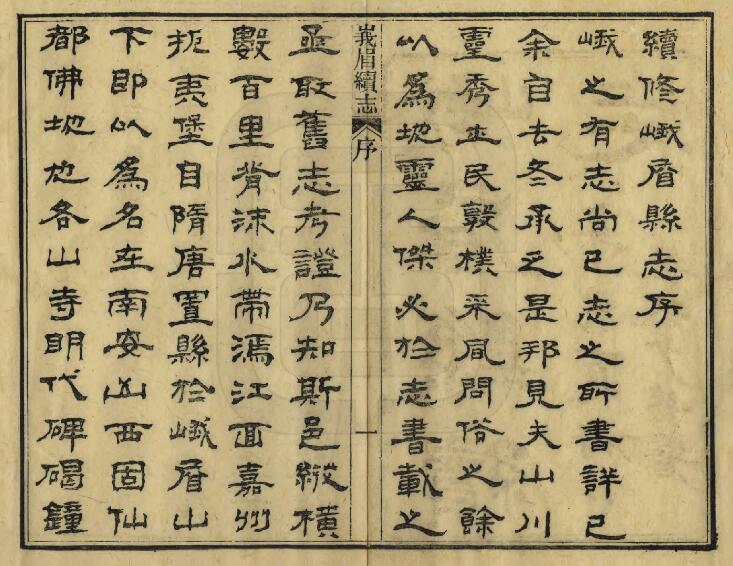 續修峨眉縣志序
峨之有志尚已志之所書詳已
余自去冬承乏是邦見夫山川
靈秀士民敦樸采風問俗之餘
以為地靈人傑必於志書載之
峩眉續志
序
一
亟取舊志考證乃知斯邑縱橫
數百里背沫水帶溤江面嘉州
扼夷堡自隋唐置縣於峨眉山
下即以為名在南安山西固仙
都佛地也各山寺明代碑碣鐘